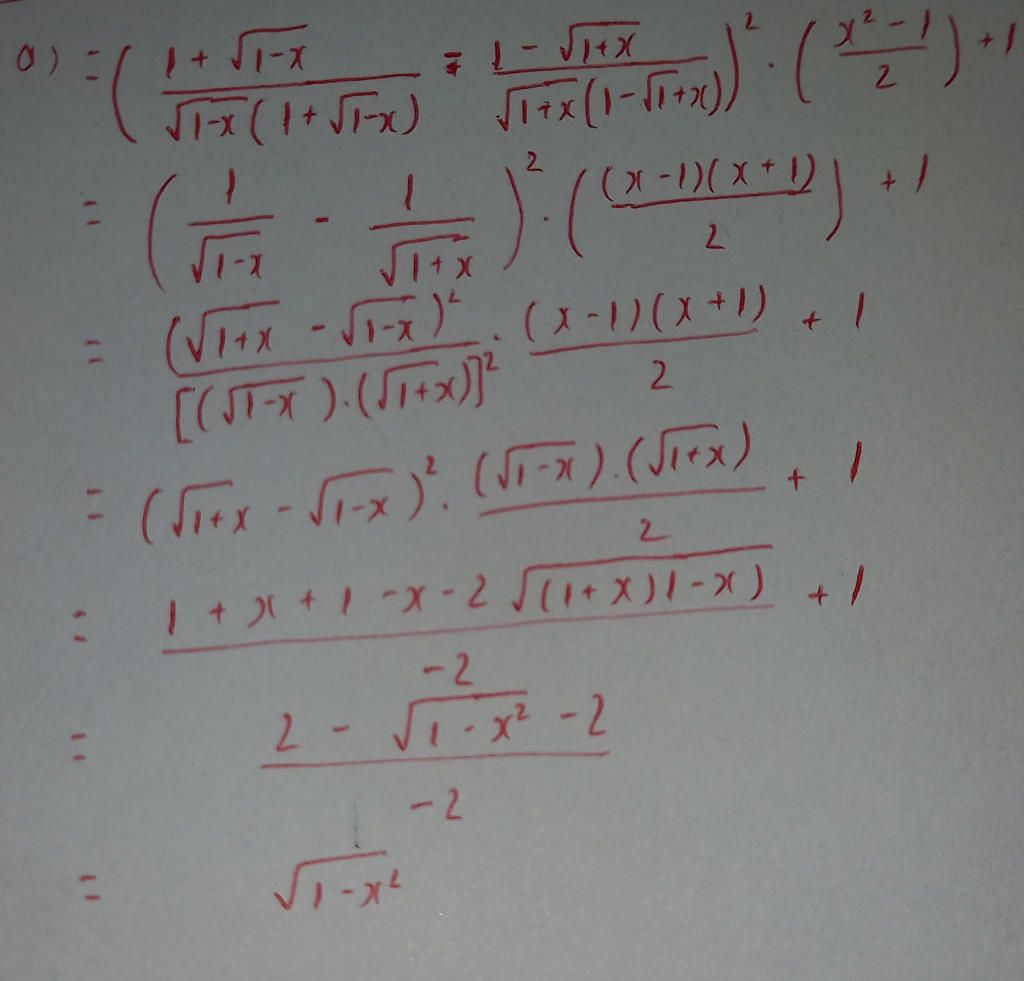 a) = ( \frac{1 + \sqrt{1-x}}{\sqrt{1-x}(1+\sqrt{1-x})} - \frac{1 - \sqrt{1+x}}{\sqrt{1+x}(1-\sqrt{1+x})} )^2 . ( \frac{x^2 - 1}{2} ) + 1
= ( \frac{1}{\sqrt{1-x}} - \frac{1}{\sqrt{1+x}} )^2 . ( \frac{(x-1)(x+1)}{2} ) + 1
= \frac{(\sqrt{1+x} - \sqrt{1-x})^2}{[(\sqrt{1-x}).(\sqrt{1+x})]^2} . \frac{(x-1)(x+1)}{2} + 1
= (\sqrt{1+x} - \sqrt{1-x})^2 . \frac{(\sqrt{1-x}).(\sqrt{1+x})}{2} + 1
= \frac{1 + x + 1 - x - 2\sqrt{(1+x)1-x)}}{-2} + 1
= \frac{2 - \sqrt{1-x^2} - 2}{-2}
= \sqrt{1-x^2}